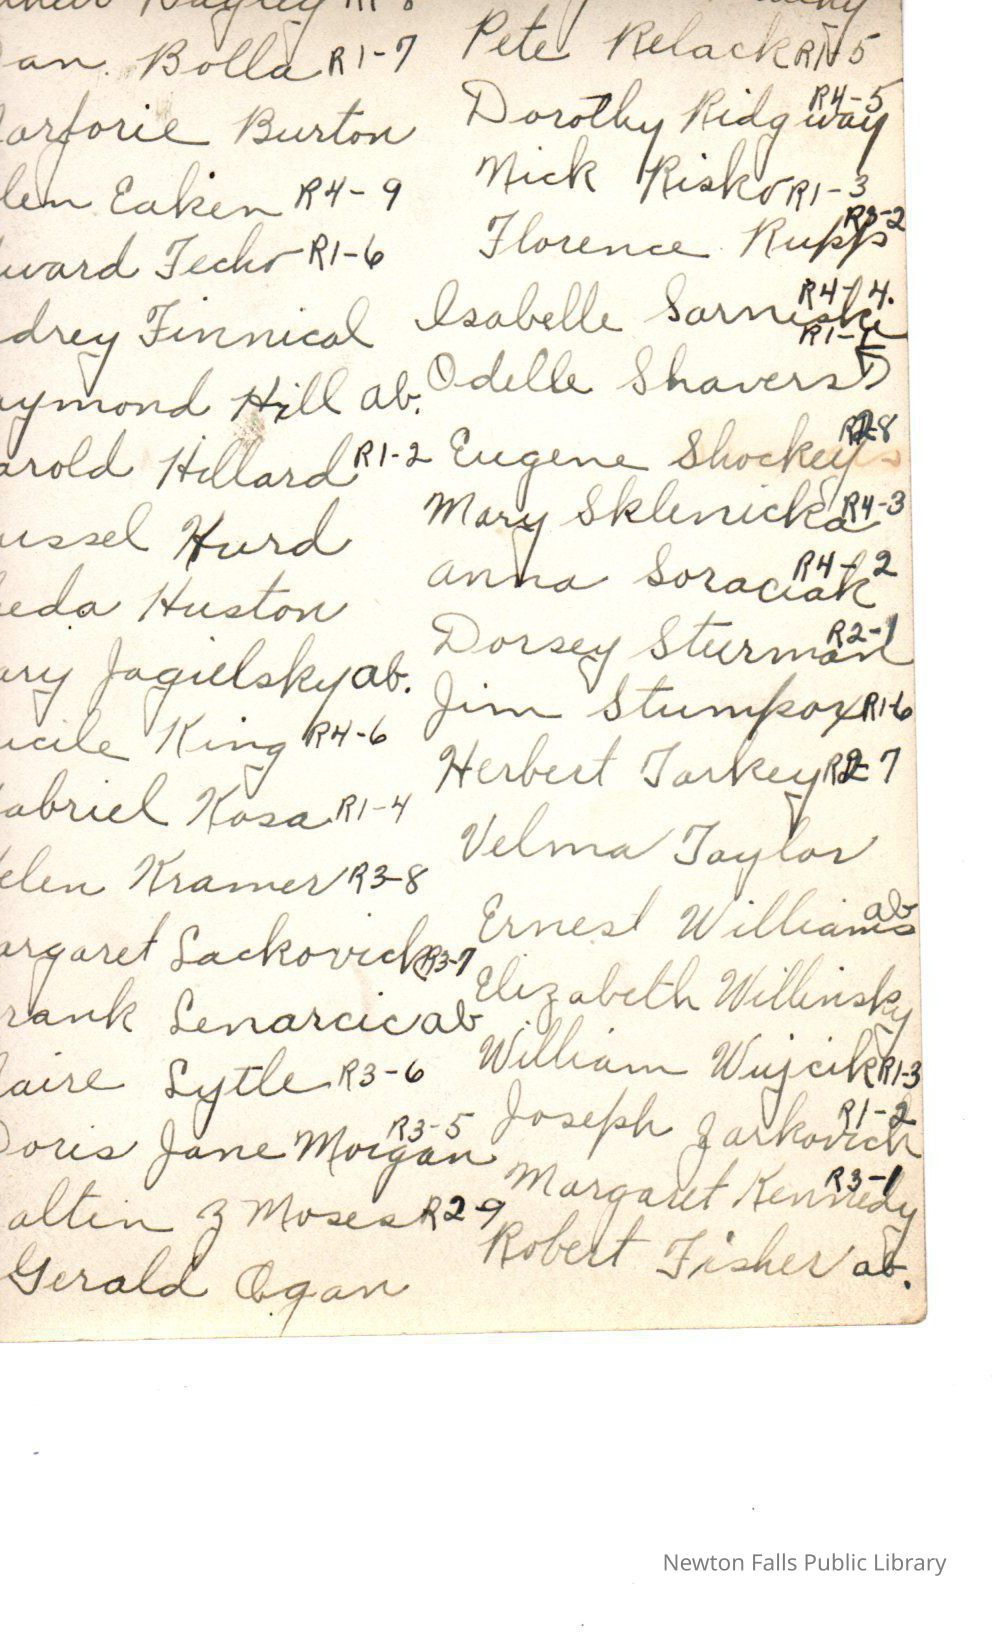 Bagley R1-8
an Bolla R1-7
arjorie Burton
len Eaken R4-9
ward Fecho R1-6
drey Finnical
aymond Hill ab.
arold Hillard R1-2
ussel Hurd
eda Huston
ary Jagielsky ab.
ucile King R4-6
abriel Kosa R1-4
elen Kramer R3-8
argaret Lackovich R3-7
rank Lenarcic ab
laire Lytle R3-6
Doris Jane Morgan R3-5
altin Z Moses R2-9
Gerald Ogan
Pete Relack R1-5
Dorothy Ridgway R4-5
Nick Risko R1-3
Florence Rupp R3-2
Isabelle Sarniske R4-4.
Odelle Shavers R1-1
Eugene Shockey R2-8
Mary Sklenicka R4-3
Anna Soraciak R4-2
Dorsey Sturman R2-1
Jim Stumpox R1-6
Herbert Tarkey R2-7
Velma Taylor
Ernest Williams ab
Elizabeth Willinsky
William Wujcik R1-3
Joseph Zarkovich R1-2
Margaret Kennedy R3-1
Robert Fisher ab.
Newton Falls Public Library